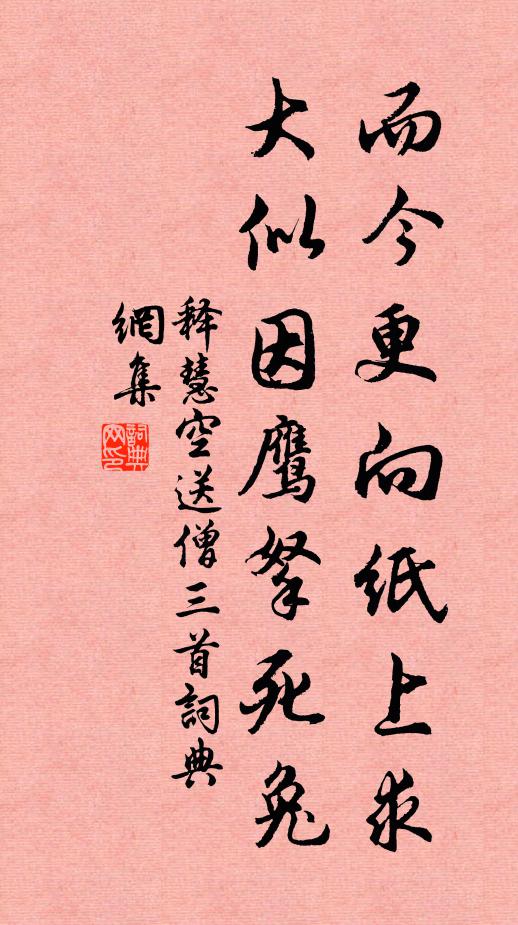 而今更向纸上求
大似因鹰拏死兔
释慧空送僧三首詞典
網集
詞典网印